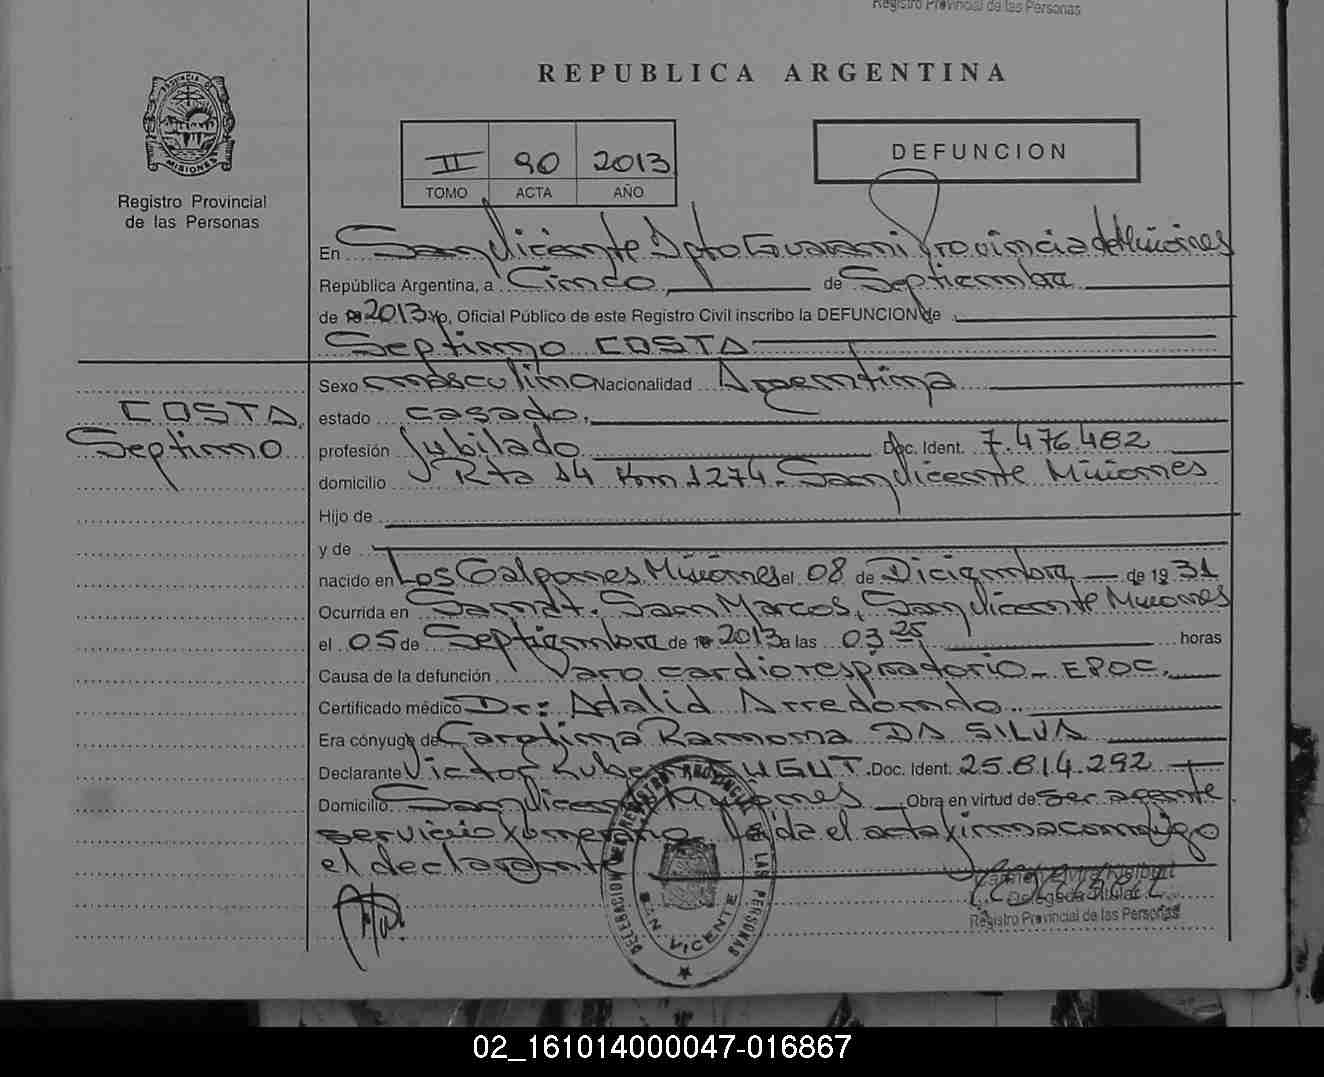 Registro Provincial de las Personas
REPUBLICA ARGENTINA
PROVINCIA DE
MISIONES
Registro Provincial
de las Personas
II 90 2013
TOMO ACTA AÑO
DEFUNCION
En San Vicente Dpto Guarani Provincia de Misiones
República Argentina, a Cinco de Septiembre
de 2013 yo, Oficial Público de este Registro Civil inscribo la DEFUNCION de
Septimo COSTA
COSTA
Septimo
Sexo masculino Nacionalidad Argentina
estado casado.
profesión Jubilado Doc. Ident. 7.476.482
domicilio Rta 14 Km 1274. San Vicente Misiones
Hijo de
y de
nacido en Los Galpones Misiones el 08 de Diciembre de 1931
Ocurrida en Sanat. San Marcos, San Vicente Misiones
el 05 de Septiembre de 2013 a las 03 25 horas
Causa de la defunción Paro cardiorespiratorio - EPOC.
Certificado médico Dr: Adalid Arredondo
Era cónyuge de Carolina Ramona DA SILVA
Declarante Victor Ruben Doc. Ident. 25.614.292
Domicilio San Vicente Misiones Obra en virtud de ser agente
servicio funerario. Leida el acta firma conmigo
el declarante
Delegada Titular
Registro Provincial de las Personas
DELEGACION DEL REGISTRO PROVINCIAL DE LAS PERSONAS
SAN VICENTE
02_161014000047-016867